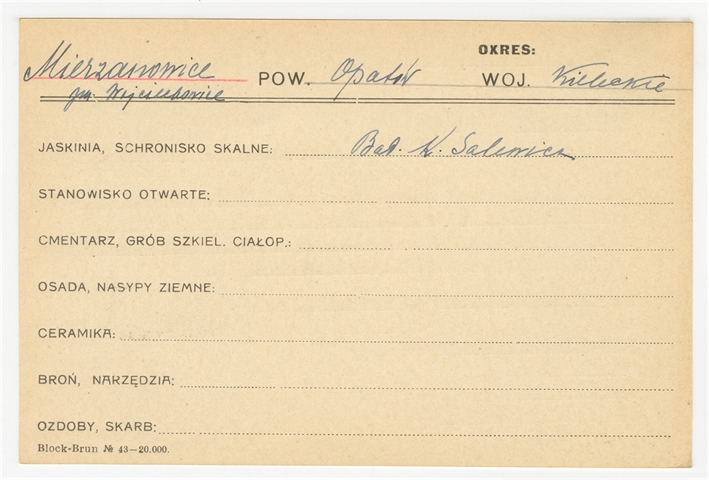 OKRES:
Mierzanowice POW. Opatów WOJ. Kieleckie
gm. Wojciechowice
JASKINIA, SCHRONISKO SKALNE: Bad. K. Salewicz
STANOWISKO OTWARTE:
CMENTARZ, GRÓB SZKIEL. CIAŁOP.:
OSADA, NASYPY ZIEMNE:
CERAMIKA:
BROŃ, NARZĘDZIA:
OZDOBY, SKARB:
Block-Brun № 43—20.000.